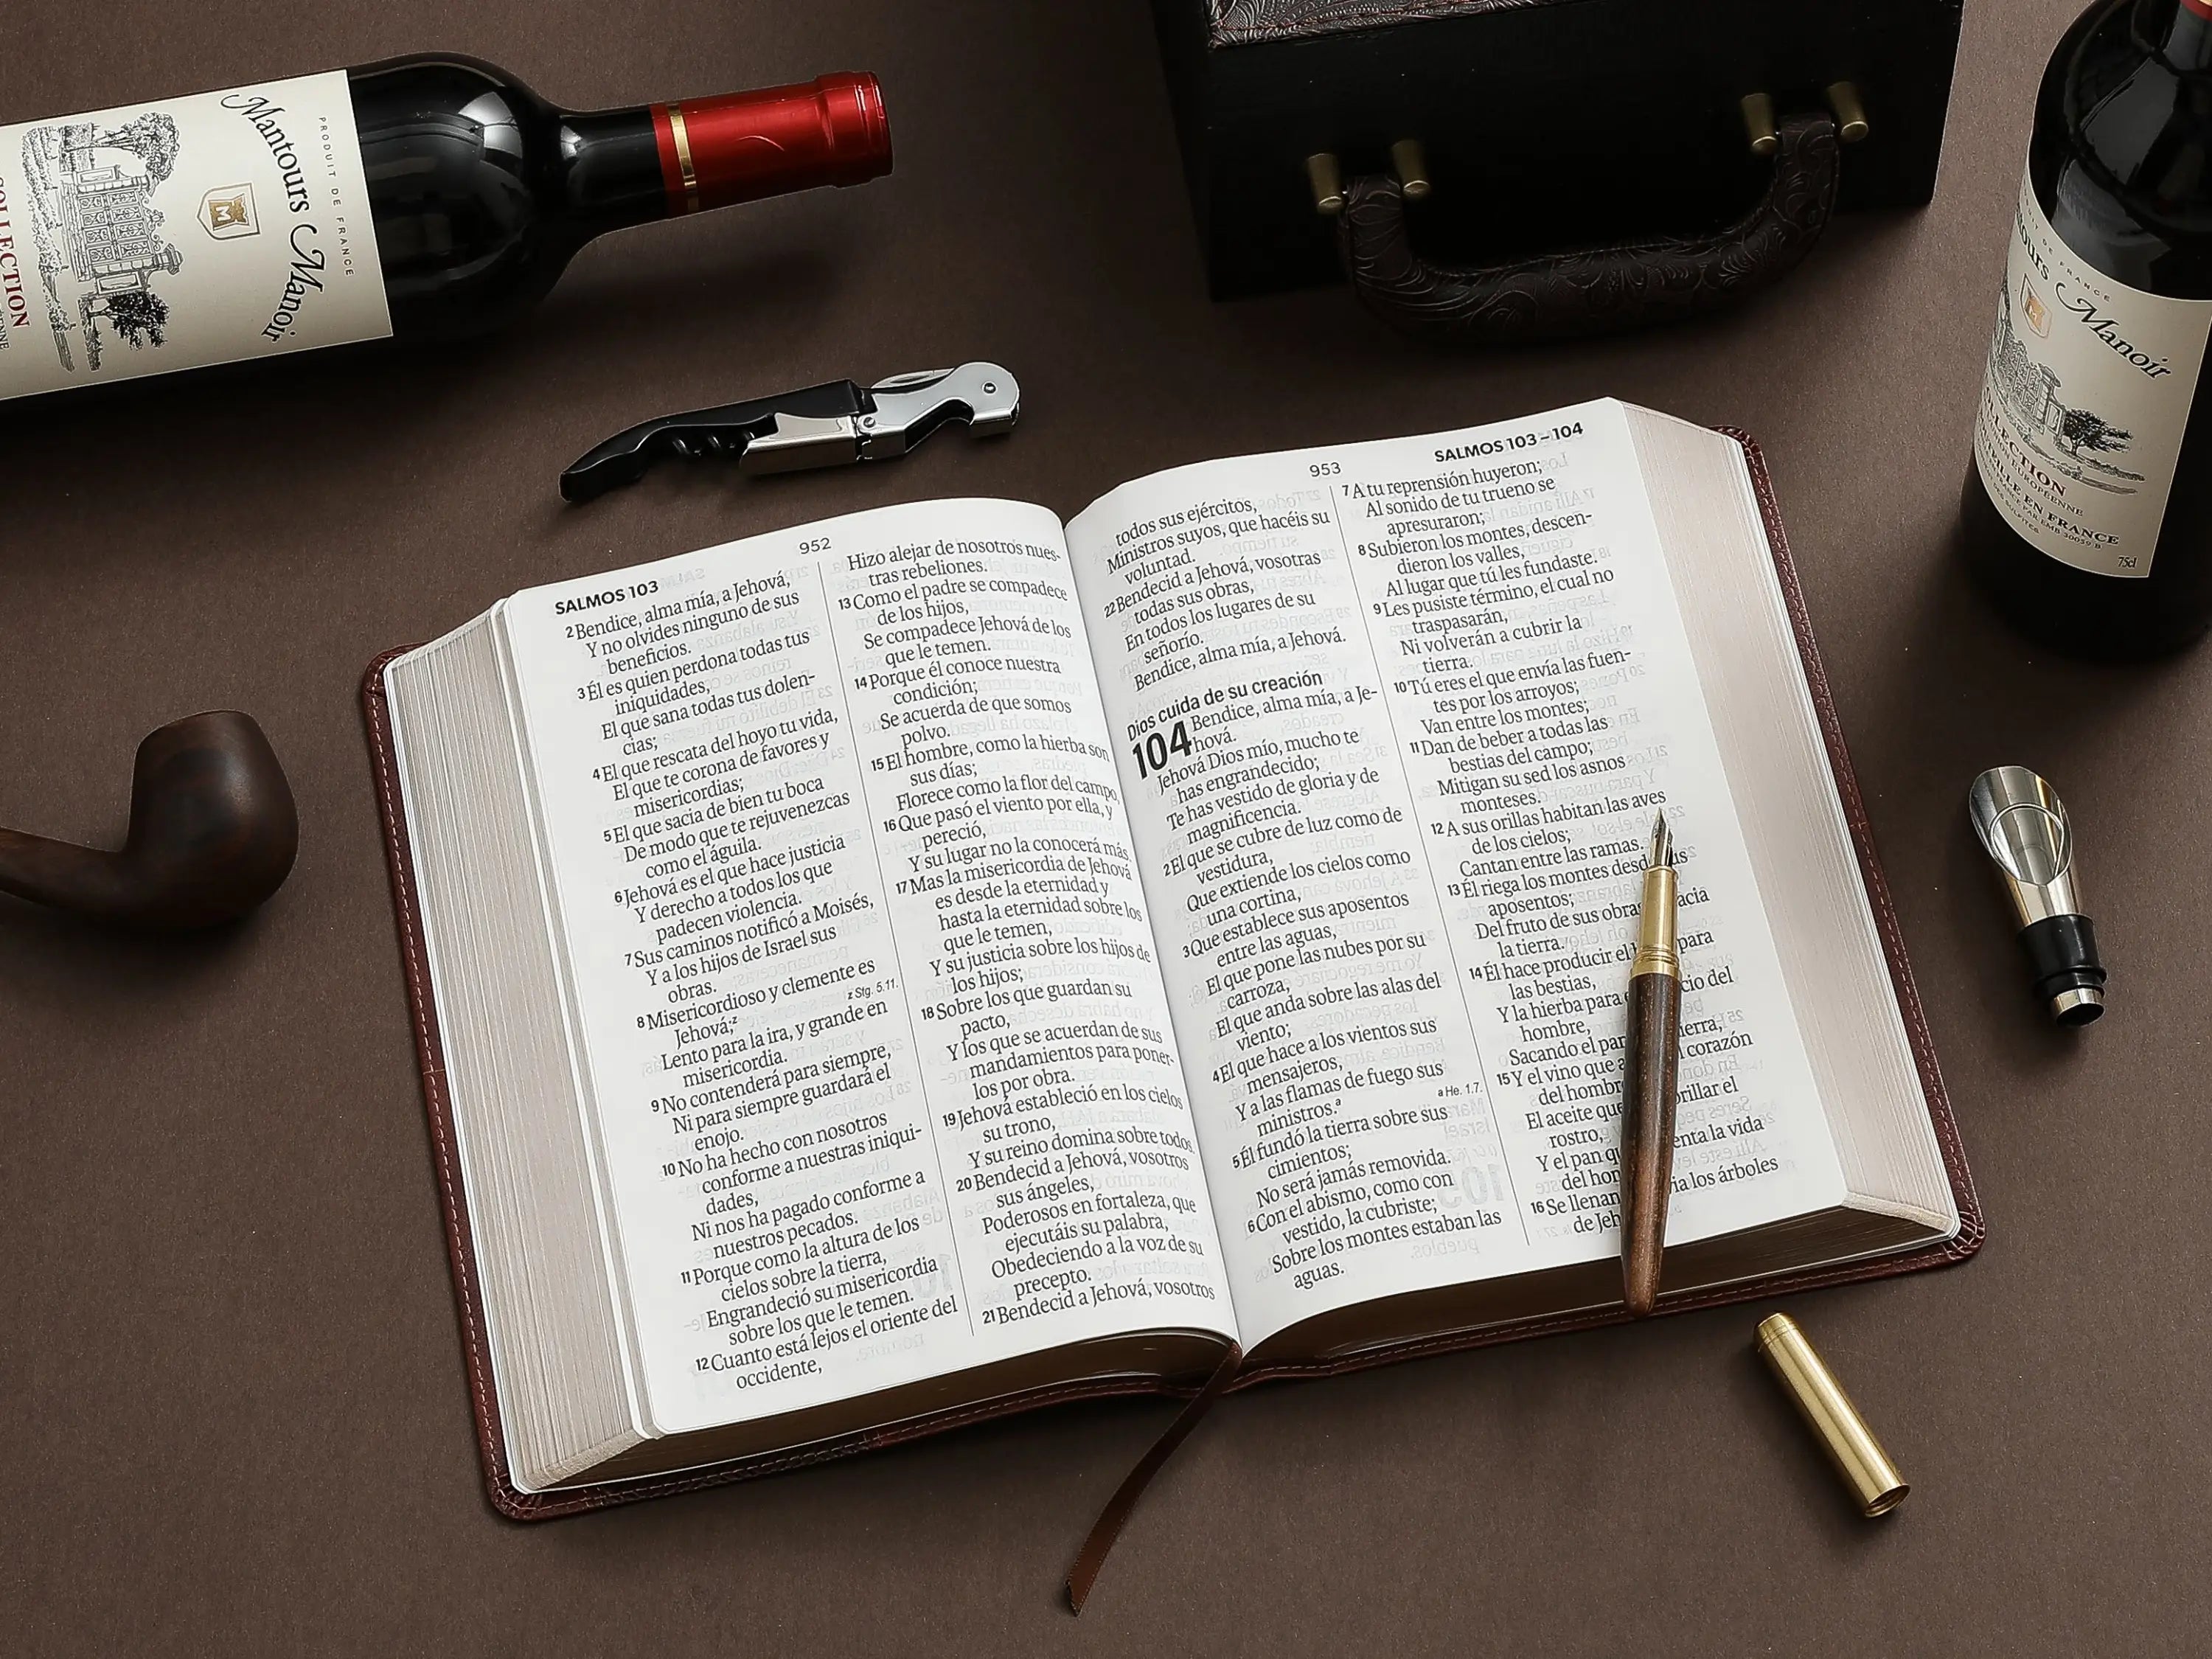 Mantours Manoir
PRODUIT DE FRANCE
M
COLLECTION
SALMOS 103
952
2 Bendice, alma mía, a Jehová,
Y no olvides ninguno de sus
beneficios.
3 Él es quien perdona todas tus
iniquidades,
El que sana todas tus dolen-
cias;
4 El que rescata del hoyo tu vida,
El que te corona de favores y
misericordias;
5 El que sacia de bien tu boca
De modo que te rejuvenezcas
como el águila.
6 Jehová es el que hace justicia
Y derecho a todos los que
padecen violencia.
7 Sus caminos notificó a Moisés,
Y a los hijos de Israel sus
obras.
8 Misericordioso y clemente es
Jehová;z
z Stg. 5.11.
Lento para la ira, y grande en
misericordia.
9 No contenderá para siempre,
Ni para siempre guardará el
enojo.
10 No ha hecho con nosotros
conforme a nuestras iniqui-
dades,
Ni nos ha pagado conforme a
nuestros pecados.
11 Porque como la altura de los
cielos sobre la tierra,
Engrandeció su misericordia
sobre los que le temen.
12 Cuanto está lejos el oriente del
occidente,
Hizo alejar de nosotros nues-
tras rebeliones.
13 Como el padre se compadece
de los hijos,
Se compadece Jehová de los
que le temen.
14 Porque él conoce nuestra
condición;
Se acuerda de que somos
polvo.
15 El hombre, como la hierba son
sus días;
Florece como la flor del campo,
16 Que pasó el viento por ella, y
pereció,
Y su lugar no la conocerá más.
17 Mas la misericordia de Jehová
es desde la eternidad y
hasta la eternidad sobre los
que le temen,
Y su justicia sobre los hijos de
los hijos;
18 Sobre los que guardan su
pacto,
Y los que se acuerdan de sus
mandamientos para poner-
los por obra.
19 Jehová estableció en los cielos
su trono,
Y su reino domina sobre todos.
20 Bendecid a Jehová, vosotros
sus ángeles,
Poderosos en fortaleza, que
ejecutáis su palabra,
Obedeciendo a la voz de su
precepto.
21 Bendecid a Jehová, vosotros
953
SALMOS 103–104
todos sus ejércitos,
Ministros suyos, que hacéis su
voluntad.
22 Bendecid a Jehová, vosotras
todas sus obras,
En todos los lugares de su
señorío.
Bendice, alma mía, a Jehová.
Dios cuida de su creación
104 Bendice, alma mía, a Je-
hová.
Jehová Dios mío, mucho te
has engrandecido;
Te has vestido de gloria y de
magnificencia.
2 El que se cubre de luz como de
vestidura,
Que extiende los cielos como
una cortina,
3 Que establece sus aposentos
entre las aguas,
El que pone las nubes por su
carroza,
El que anda sobre las alas del
viento;
4 El que hace a los vientos sus
mensajeros,
Y a las flamas de fuego sus
ministros.a
a He. 1.7.
5 Él fundó la tierra sobre sus
cimientos;
No será jamás removida.
6 Con el abismo, como con
vestido, la cubriste;
Sobre los montes estaban las
aguas.
7 A tu reprensión huyeron;
Al sonido de tu trueno se
apresuraron;
8 Subieron los montes, descen-
dieron los valles,
Al lugar que tú les fundaste.
9 Les pusiste término, el cual no
traspasarán,
Ni volverán a cubrir la
tierra.
10 Tú eres el que envía las fuen-
tes por los arroyos;
Van entre los montes;
11 Dan de beber a todas las
bestias del campo;
Mitigan su sed los asnos
monteses.
12 A sus orillas habitan las aves
de los cielos;
Cantan entre las ramas.
13 Él riega los montes desde
aposentos;
Del fruto de sus obras
la tierra.
14 Él hace producir el para
las bestias,
Y la hierba para del
hombre,
Sacando el pan tierra,
15 Y el vino que corazón
del hombre
El aceite que brillar el
rostro,
Y el pan la vida
del
16 Se llenan los árboles
de
Manoir
COLLECTION
EN FRANCE
75cl